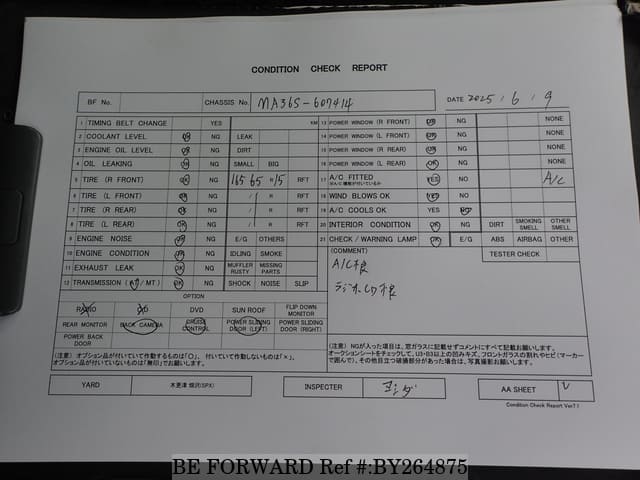 CONDITION CHECK REPORT
BF No. CHASSIS No. MA36S-607414 DATE 2025 / 6 / 9
1 TIMING BELT CHANGE YES KM
2 COOLANT LEVEL OK NG LEAK
3 ENGINE OIL LEVEL OK NG DIRT
4 OIL LEAKING OK NG SMALL BIG
5 TIRE (R FRONT) OK NG 165 65 R 15 RFT
6 TIRE (L FRONT) OK NG / R RFT
7 TIRE (R REAR) OK NG / R RFT
8 TIRE (L REAR) OK NG / R RFT
9 ENGINE NOISE OK NG E/G OTHERS
10 ENGINE CONDITION OK NG IDLING SMOKE
11 EXHAUST LEAK OK NG MUFFLER RUSTY MISSING PARTS
12 TRANSMISSION (AT / MT) OK NG SHOCK NOISE SLIP
OPTION
RADIO DVD SUN ROOF FLIP DOWN MONITOR
REAR MONITOR BACK CAMERA CRUISE CONTROL POWER SLIDING DOOR (LEFT) POWER SLIDING DOOR (RIGHT)
POWER BACK DOOR
(注意) オプション品が付いていて作動するものは「○」、付いていて作動しないものは「×」、
オプション品が付いていないものは「無印」でお願いします。
13 POWER WINDOW (R FRONT) OK NG NONE
14 POWER WINDOW (L FRONT) OK NG NONE
15 POWER WINDOW (R REAR) OK NG NONE
16 POWER WINDOW (L REAR) OK NG NONE
17 A/C FITTED YES NO A/C
18 WIND BLOWS OK YES NO
19 A/C COOLS OK YES NO
20 INTERIOR CONDITION OK NG DIRT SMOKING SMELL OTHER SMELL
21 CHECK / WARNING LAMP OK E/G ABS AIRBAG OTHER
(COMMENT) TESTER CHECK
A/C不良
ラジオ.CD不良
(注意) NGが入った項目は、窓ガラスに記載せずコメントにすべて記載お願いします。
オークションシートをチェックして、U3・B3以上の凹みキズ、フロントガラスの割れやヒビ(マーカーで囲んで)、その他目立つ破損部分があった場合は、写真撮影お願いします。
YARD 木更津 畑沢(SPX) INSPECTER ヨシダ AA SHEET
Condition Check Report Ver7.1
BE FORWARD Ref #:BY264875